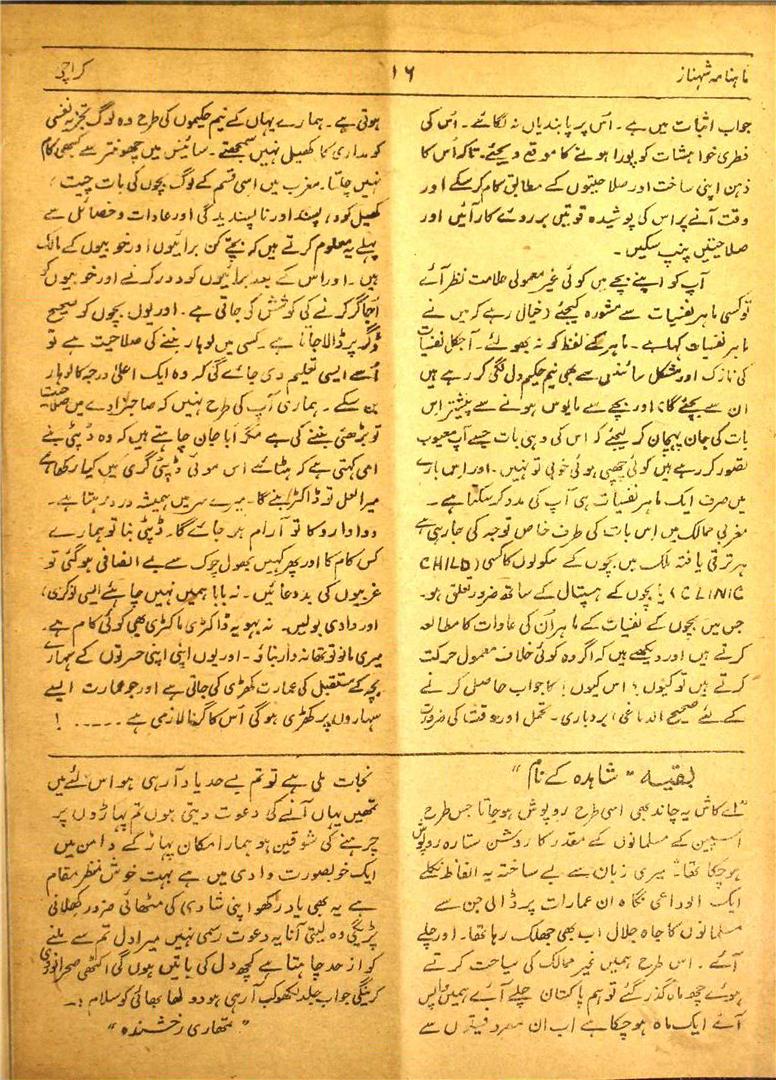 ماہنامہ شہناز
۱۶
کراچی
جواب اثبات میں ہے۔ اس پر پابندیاں نہ لگائے۔ اُس کی
فطری خواہشات کو پورا ہونے کا موقع دیجئے۔ تاکہ اُس کا
ذہن اپنی ساخت اور صلاحیتوں کے مطابق کام کر سکے اور
وقت آنے پر اس کی پوشیدہ قوتیں بر روئے کار آئیں اور
صلاحیتیں پنپ سکیں۔
آپ کو اپنے بچے میں کوئی غیر معمولی علامت نظر آئے
تو کسی ماہر نفسیات سے مشورہ کیجئے (خیال رہے کہ میں نے
ماہر نفسیات کہا ہے۔ ماہر کے لفظ کو نہ بھولئے۔ آجکل نفسیات
کی نازک اور مشکل سائنس سے بھی نیم حکیم دل لگی کر رہے ہیں
ان سے بچئے گا) اور بچے سے مایوس ہونے سے پیشتر اس
بات کی جان پہچان کر لیجئے کہ اس کی وہی بات جسے آپ معیوب
تصور کر رہے ہیں کوئی چھپی ہوئی خوبی تو نہیں۔ اور اس بارے
میں صرف ایک ماہر نفسیات ہی آپ کی مدد کر سکتا ہے۔
مغربی ممالک میں اس بات کی طرف خاص توجہ کی جا رہی ہے
ہر ترقی یافتہ ملک میں بچوں کے سکولوں کا کسی (CHILD
CLINIC) یا بچوں کے ہسپتال کے ساتھ ضرور تعلق ہو۔
جس میں بچوں کے نفسیات کے ماہر اُن کی عادات کا مطالعہ
کرتے ہیں اور دیکھتے ہیں کہ اگر وہ کوئی خلاف معمول حرکت
کرتے ہیں تو کیوں؟ اس کیوں؟ کا جواب حاصل کرنے
کے لئے صحیح الدماغی، بردباری۔ تحمل اور وقت کی ضرورت
ہوتی ہے۔ ہمارے یہاں کے نیم حکیموں کی طرح وہ لوگ تجزیہ نفسی
کو مداری کا کھیل نہیں سمجھتے۔ سائنس میں چھو منتر سے کبھی کام
نہیں چلتا۔ مغرب میں اسی قسم کے لوگ بچوں کی بات چیت،
کھیل کود، پسند اور ناپسندیدگی اور عادات و خصائل سے
پہلے یہ معلوم کرتے ہیں کہ بچے کن برائیوں اور خوبیوں کے مالک
ہیں۔ اور اس کے بعد برائیوں کو دور کرنے اور خوبیوں کو
اُجاگر کرنے کی کوشش کی جاتی ہے۔ اور یوں بچوں کو صحیح
ڈگر پر ڈالا جاتا ہے۔ کسی میں لوہار بننے کی صلاحیت ہے تو
اُسے ایسی تعلیم دی جائے گی کہ وہ ایک اعلیٰ درجہ کا لوہار
بن سکے۔ ہماری آپ کی طرح نہیں کہ صاحبزادے میں صلاحیت
تو بڑھئی بننے کی ہے مگر ابا جان چاہتے ہیں کہ وہ ڈپٹی بنے
امی کہتی ہے کہ ہٹائے اس موئی ڈپٹی گری میں کیا رکھا ہے
میرا لعل تو ڈاکٹر بنے گا۔ میرے سر میں ہمیشہ درد رہتا ہے۔
دوا دارو کا تو آرام ہو جائے گا۔ ڈپٹی بنا تو ہمارے
کس کام کا اور پھر کہیں بھول چوک سے بے انصافی ہو گئی تو
غریبوں کی بددعائیں۔ نہ بابا ہمیں نہیں چاہئے ایسی نوکری،
اور دادی بولیں۔ نہ بہو یہ ڈاکٹری ماکٹری بھی کوئی کام ہے۔
میری مانو تو تھانہ دار بناؤ۔ اور یوں اپنی اپنی حسرتوں کے سہارے
بچہ کے مستقبل کی عمارت کھڑی کی جاتی ہے اور جو عمارت ایسے
سہاروں پر کھڑی ہو گی اُس کا گرنا لازمی ہے ۔۔۔۔۔ !
بقیہ "شاہدہ کے نام"
"اے کاش یہ چاند بھی اسی طرح روپوش ہو جاتا جس طرح
اسپین کے مسلمانوں کے مقدر کا روشن ستارہ روپوش
ہو چکا تھا" میری زبان سے بے ساختہ یہ الفاظ نکلے
ایک الوداعی نگاہ ان عمارات پر ڈالی جن سے
مسلمانوں کا جاہ جلال اب بھی جھلک رہا تھا۔ اور چلے
آئے۔ اس طرح ہمیں غیر ممالک کی سیاحت کرتے
ہوئے چھ ماہ گذر گئے تو ہم پاکستان چلے آئے ہمیں واپس
آئے ایک ماہ ہو چکا ہے اب ان مصروفیتوں سے
نجات ملی ہے تو تم بے حد یاد آ رہی ہو اس لئے میں
تمھیں یہاں آنے کی دعوت دیتی ہوں تم پہاڑوں پر
چڑھنے کی شوقین ہو ہمارا مکان پہاڑ کے دامن میں
ایک خوبصورت وادی میں ہے بہت خوش منظر مقام
ہے یہ بھی یاد رکھو اپنی شادی کی مٹھائی ضرور کھلانی
پڑیگی وہ لیتی آنا یہ دعوت رسمی نہیں میرا دل تم سے ملنے
کو از حد چاہتا ہے کچھ دل کی باتیں ہوں گی اکٹھی صحرا نوردی
کرینگی جواب جلد لکھو کب آ رہی ہو دولھا بھائی کو سلام :۔
"تمھاری رخشندہ"